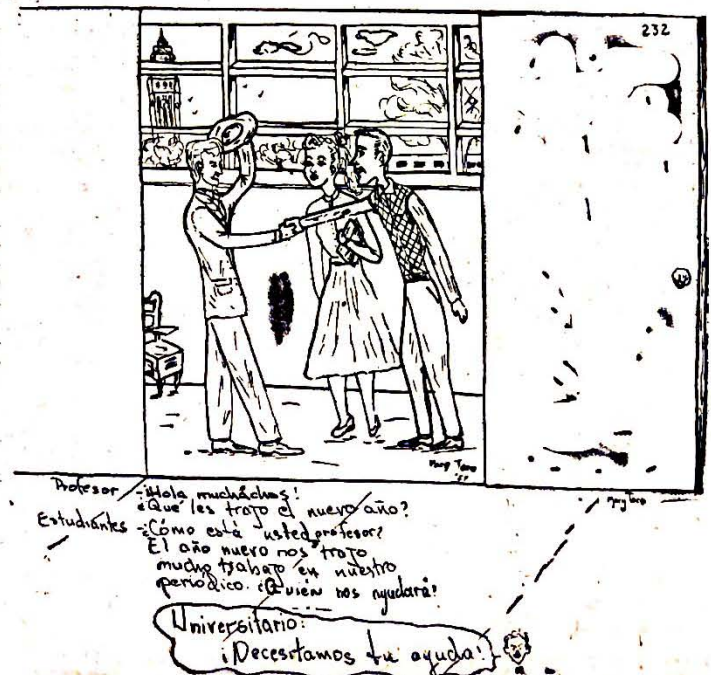 232
Mary Toro
'57
Mary Toro
Profesor -¡Hola muchachos!
¿Que les trajo el nuevo año?
Estudiantes -¿Cómo está usted profesor?
El año nuevo nos trajo
mucho trabajo en nuestro
periódico. ¿Quién nos ayudará?
Universitario:
¡Necesitamos tu ayuda!